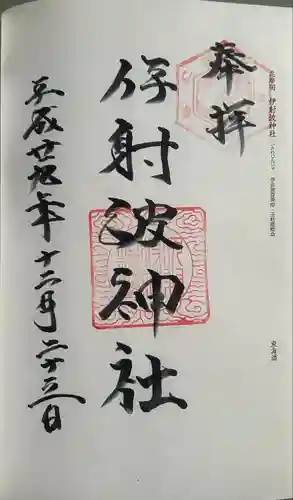 志摩国 伊射波神社
奉拝
伊射波神社
平成廿九年十二月二十三日
東海道